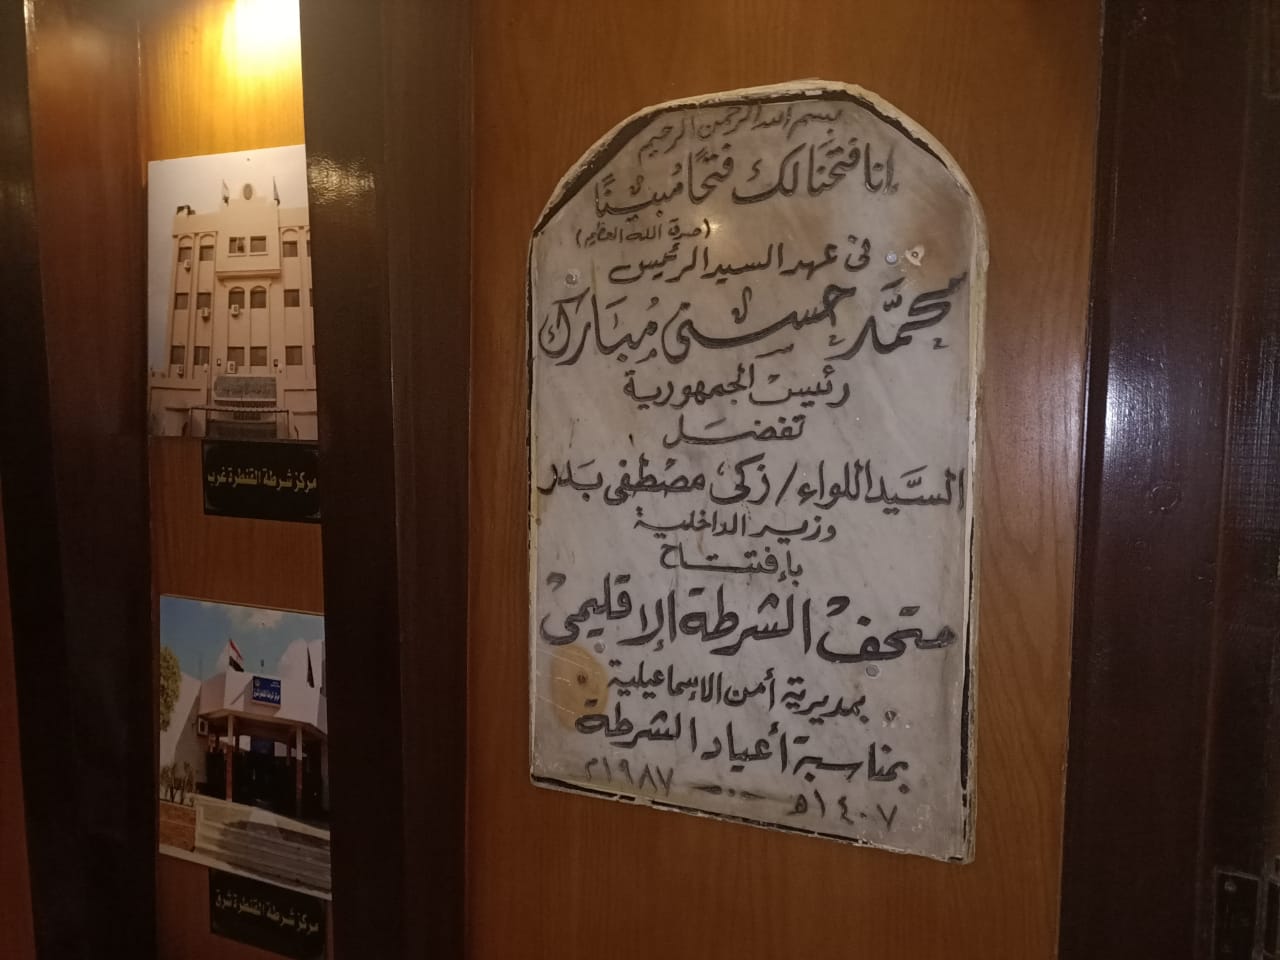 بسم الله الرحمن الرحيم
إنا فتحنا لك فتحًا مُبينًا
(صدق الله العظيم)
فى عهد السيد الرئيس
محمَّد حسنى مُبَارك
رئيس الجمهورية
تفضَل
السيَّد اللواء/ زكى مصطفى بَدر
وزير الداخلية
بإفتتاح
متحف الشرطة الإقليمى
بمديرية أمن الإسماعيلية
بمناسبة أعياد الشرطة
١٤٠٧هـ - ١٩٨٧م
مركز شرطة القنطرة غرب
مركز شرطة القنطرة شرق